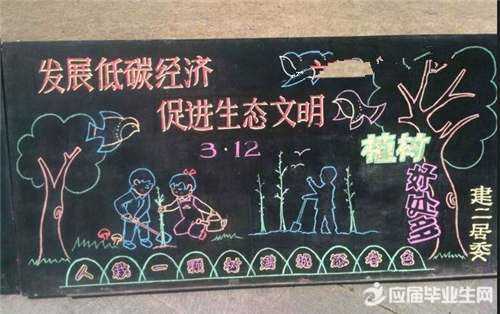 发展低碳经济
促进生态文明
3·12
植树
好处多
建二居委
人栽一颗树
应届毕业生网